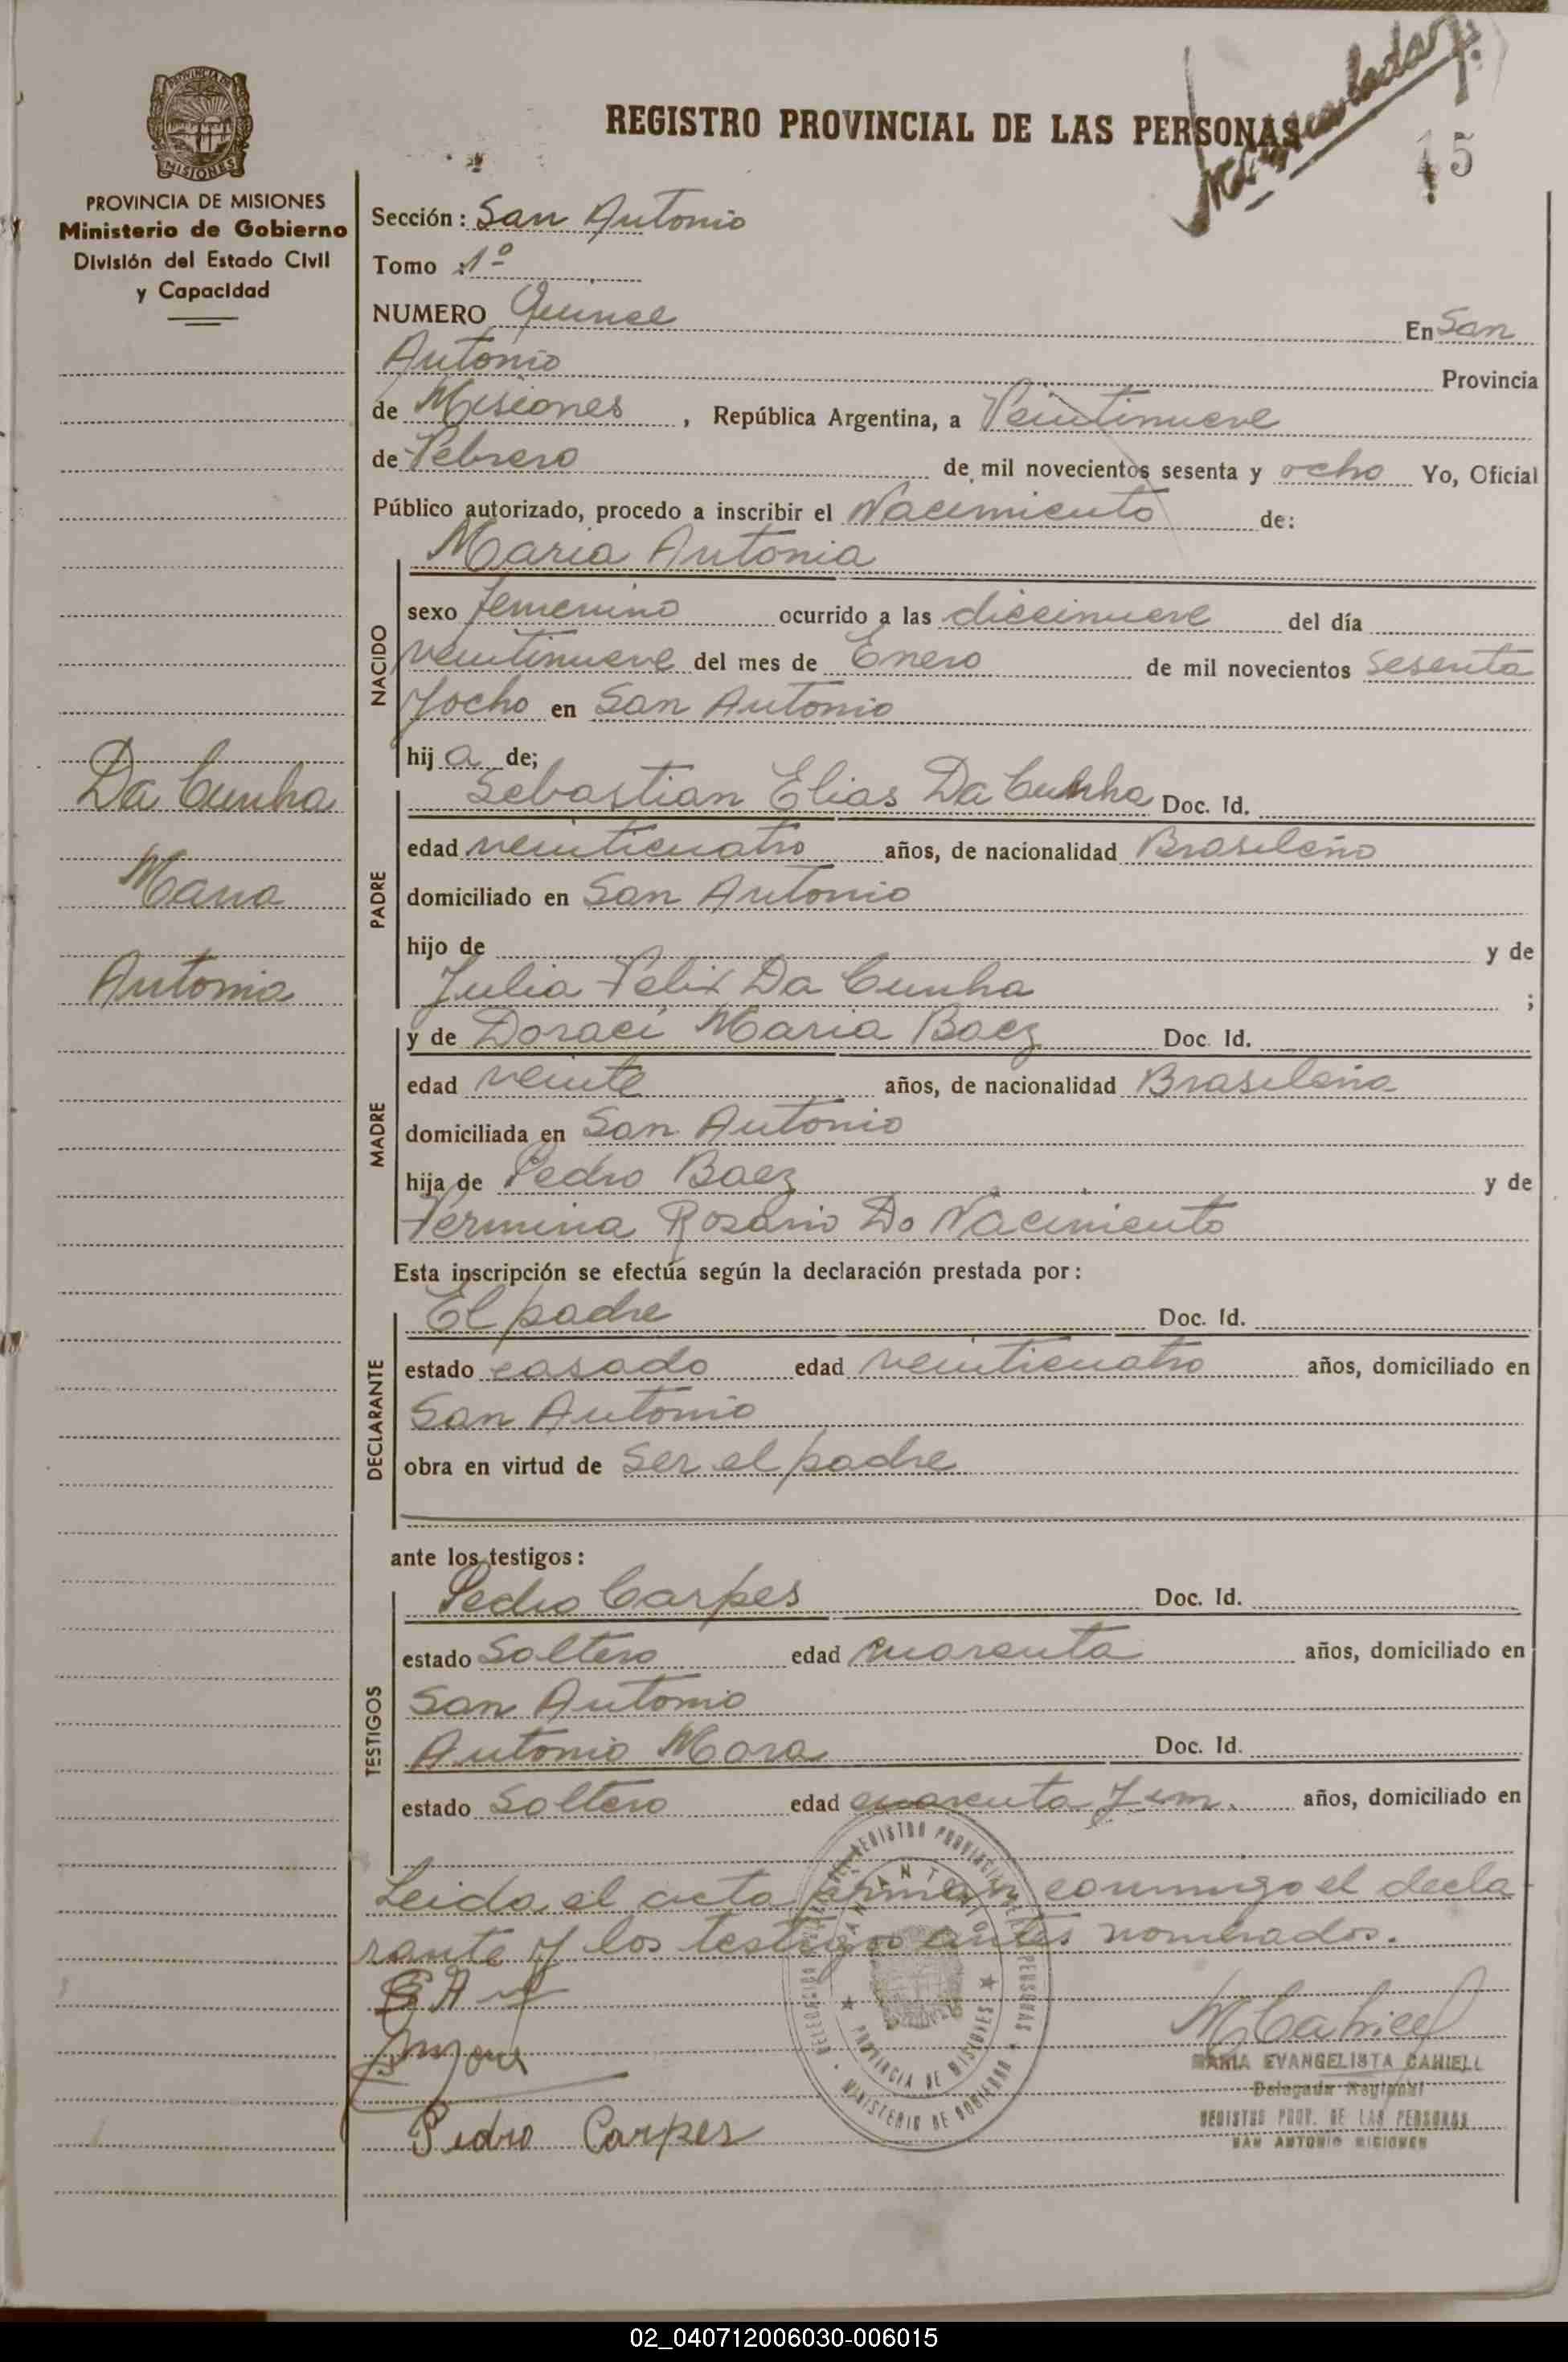 PROVINCIA DE
MISIONES
PROVINCIA DE MISIONES
Ministerio de Gobierno
División del Estado Civil
y Capacidad
REGISTRO PROVINCIAL DE LAS PERSONAS
15
Sección: San Antonio
Tomo : 1º
NUMERO Quince En San
Antonio Provincia
de Misiones, República Argentina, a Veintinueve
de Febrero de mil novecientos sesenta y ocho Yo, Oficial
Público autorizado, procedo a inscribir el Nacimiento de:
NACIDO
Maria Antonia
sexo femenino ocurrido a las diecinueve del día
veintinueve del mes de Enero de mil novecientos sesenta
y ocho en San Antonio
hija de;
Da Cunha
Maria
Antonia
PADRE
Sebastian Elias Da Cunha Doc. Id.
edad veinticuatro años, de nacionalidad Brasileño
domiciliado en San Antonio
hijo de y de
Julia Felix Da Cunha ;
MADRE
y de Doraci Maria Baez Doc. Id.
edad veinte años, de nacionalidad Brasileña
domiciliada en San Antonio
hija de Pedro Baez y de
Fermina Rosario Do Nacimiento
Esta inscripción se efectúa según la declaración prestada por:
DECLARANTE
El padre Doc. Id.
estado casado edad veinticuatro años, domiciliado en
San Antonio
obra en virtud de ser el padre
ante los testigos:
TESTIGOS
Pedro Carpes Doc. Id.
estado Soltero edad cuarenta años, domiciliado en
San Antonio
Antonio Mora Doc. Id.
estado Soltero edad cuarenta y un. años, domiciliado en
Leida el acta firman conmigo el decla
rante y los testigos antes nombrados.
REGISTRO PROVINCIAL DE LAS PERSONAS
SAN ANTONIO
PROVINCIA DE MISIONES
MINISTERIO DE GOBIERNO
Pedro Carpes
MARIA EVANGELISTA CAHIELL
Delegada Regional
REGISTRO PROV. DE LAS PERSONAS
SAN ANTONIO MISIONES
02_040712006030-006015